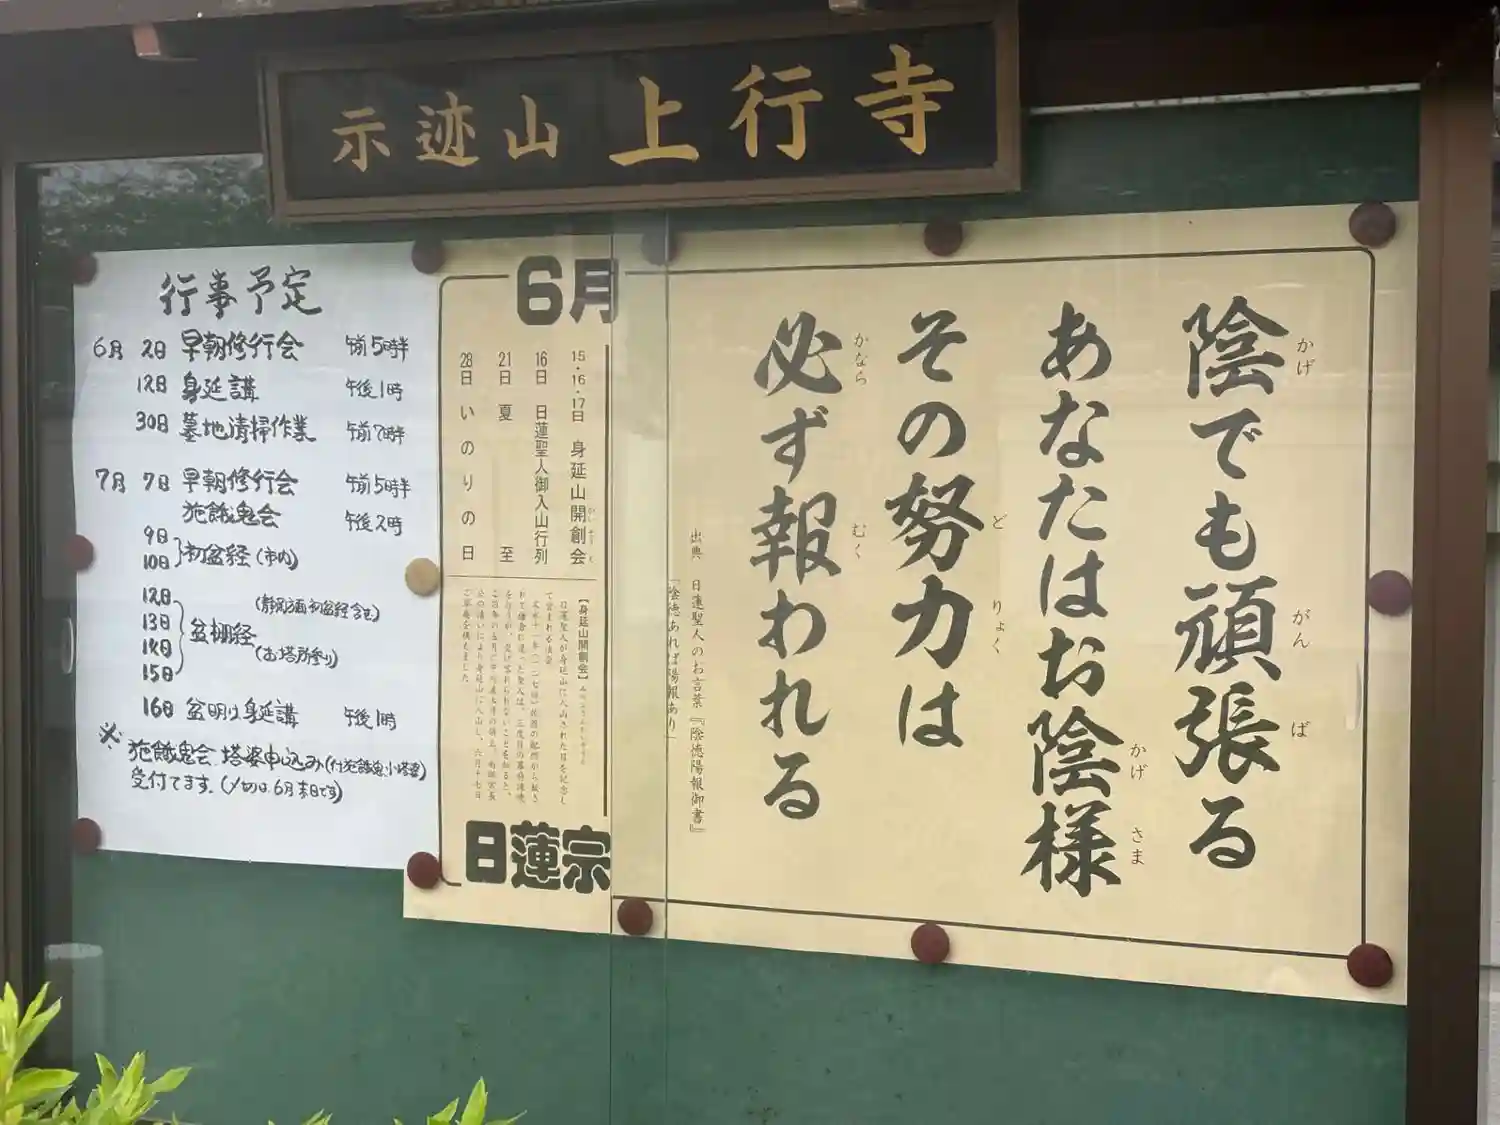 示迹山 上行寺
陰でも頑張る
かげ
がん
ば
あなたはお陰様
かげ
さま
その努力は
ど
りょく
必ず報われる
かなら
むく
出典 日蓮聖人のお言葉『陰徳陽報御書』
「陰徳あれば陽報あり」
6月
15・16・17日 身延山開創会
16日 日蓮聖人御入山行列
21日 夏至
28日 いのりの日
【身延山開創会】
日蓮聖人が身延山に入山された日を記念し
て営まれる法要
日蓮宗
行事予定
6月 2日 早朝修行会 午前5時半
12日 身延講 午後1時
30日 墓地清掃作業 午前7時半
7月 7日 早朝修行会 午前5時半
施餓鬼会 午後2時
9日
10日 初盆経(市内)
12日
13日
14日
15日
盆棚経
(静岡方面初盆経含む)
(お塔所参り)
16日 盆明け身延講 午後1時
※施餓鬼会 塔婆申込み(付施餓鬼小塔婆)
受付てます。(〆切は、6月末日です)